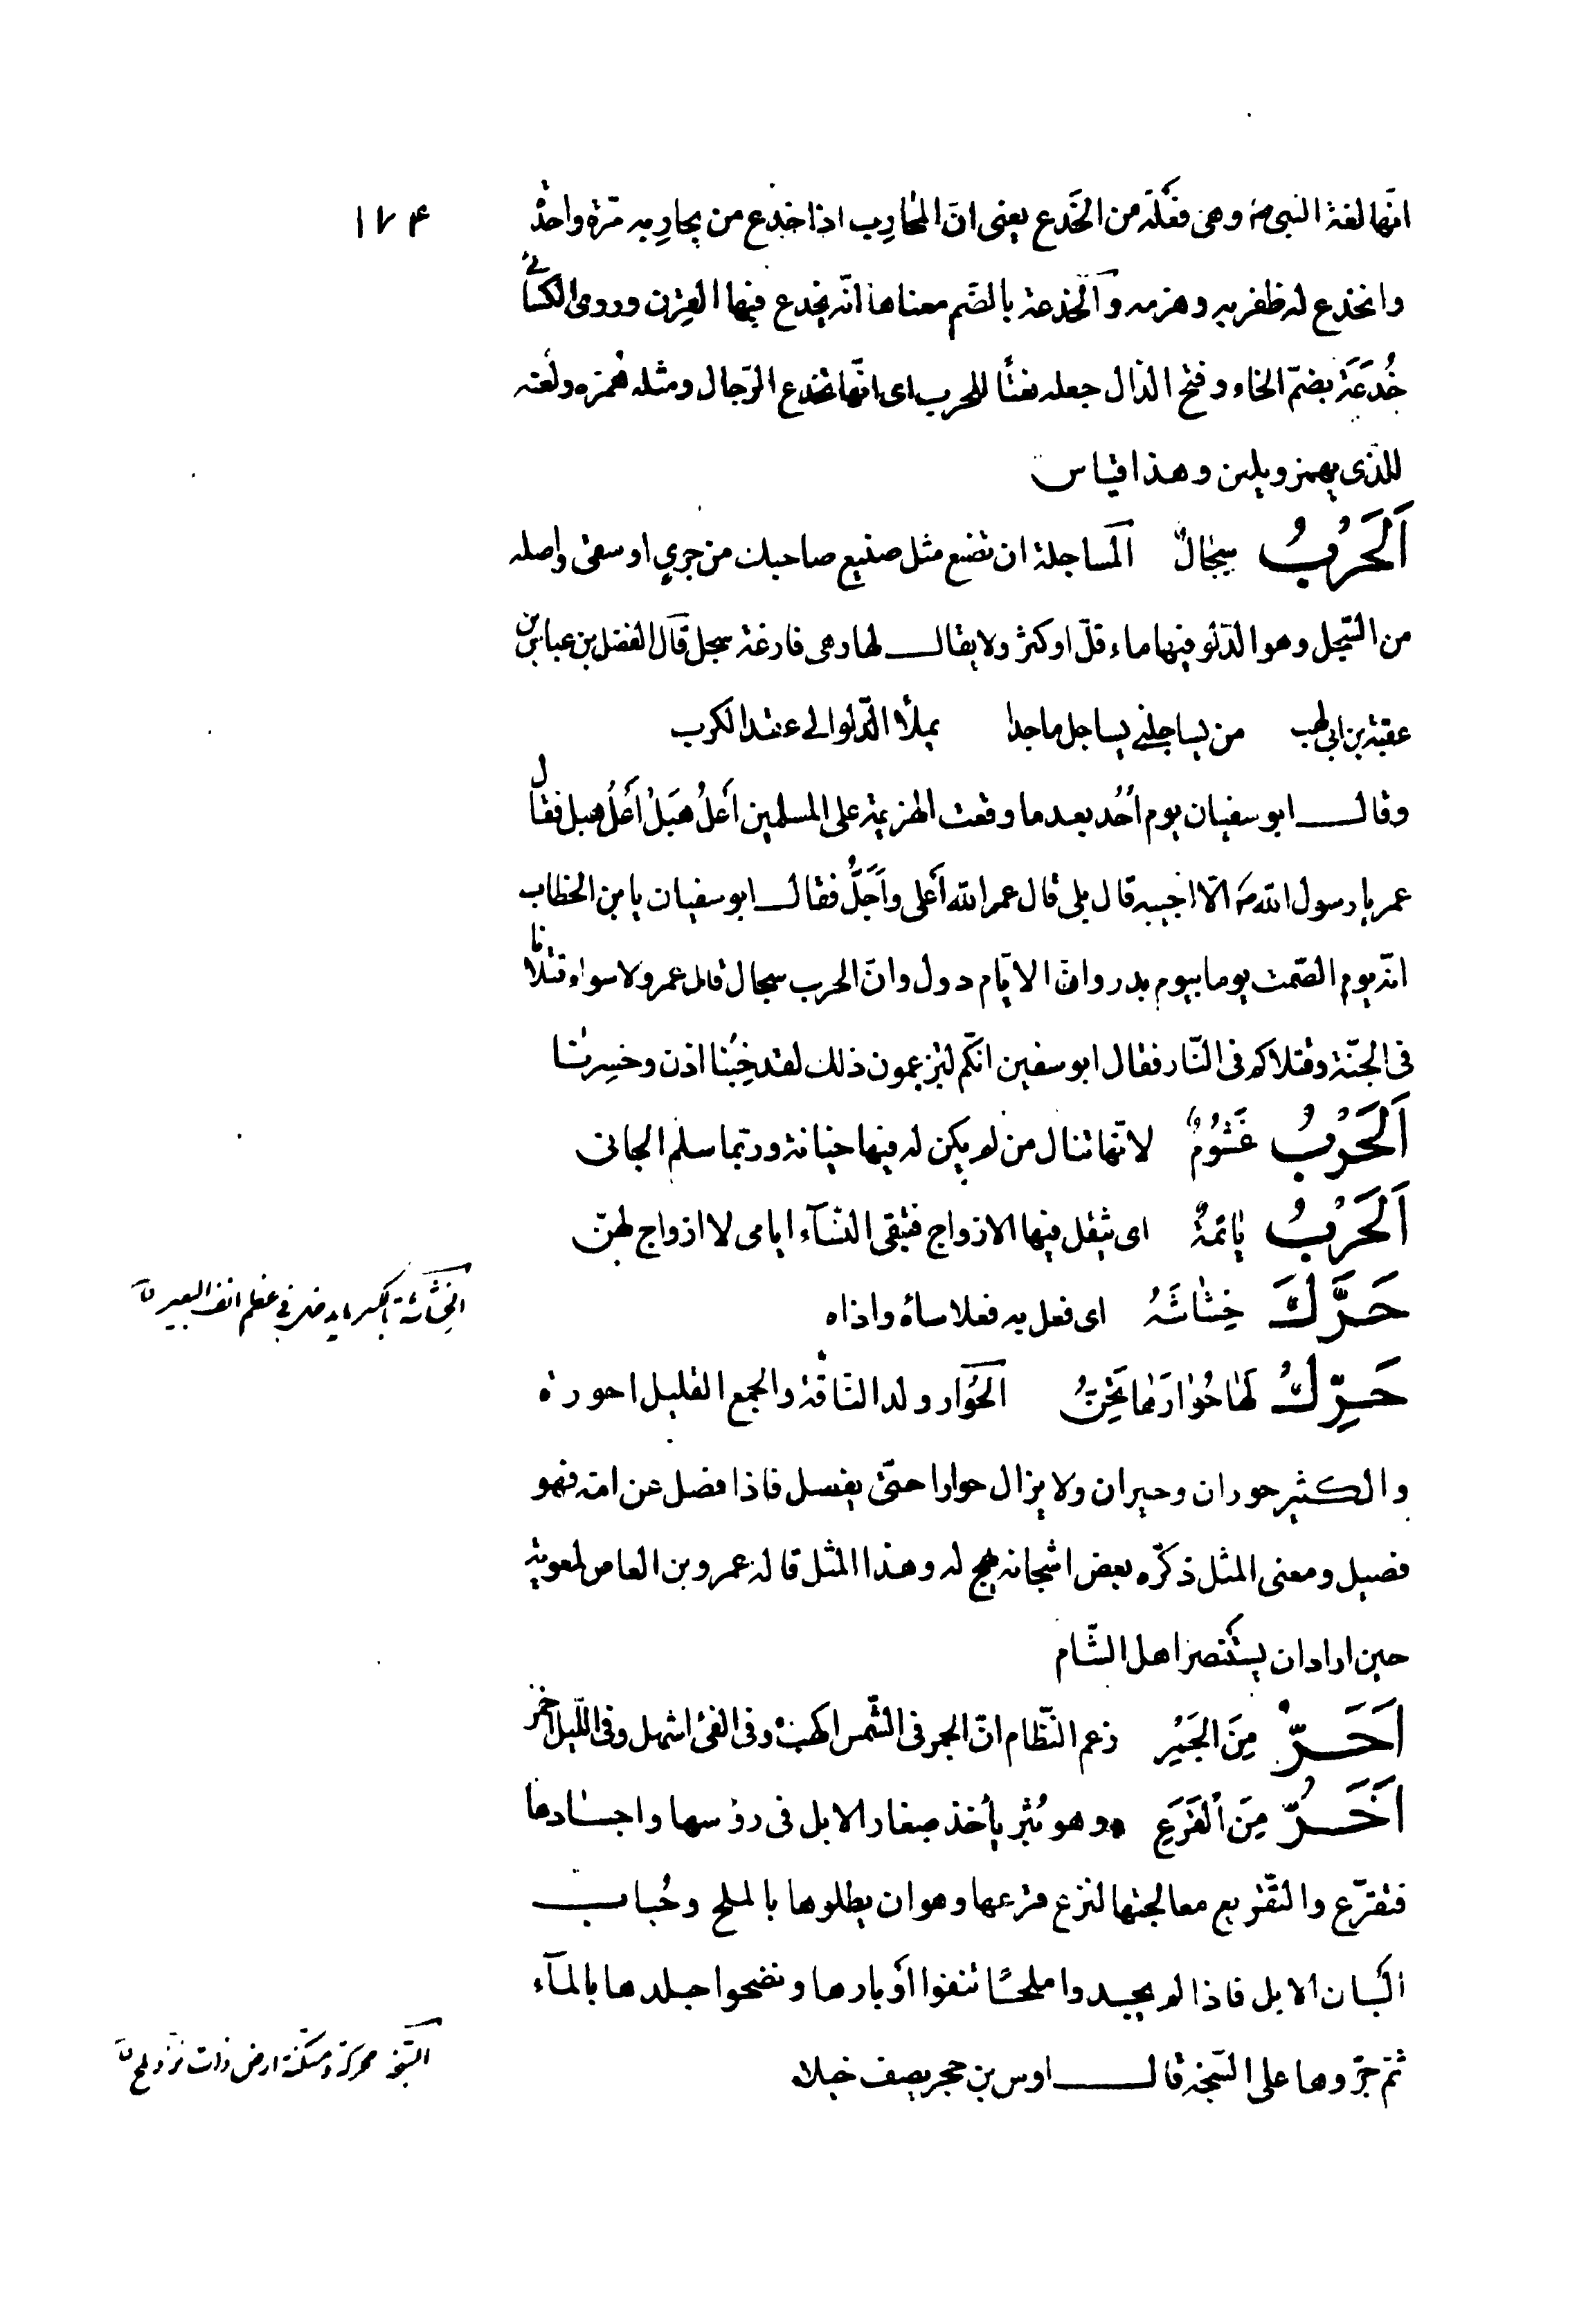 ١٧۴
انّها لغة النبى ص وهى فَعْلَة من الخَدع يعنى انّ المحارِب اذا خدع من يحارِبه مرّة واحدة
وانخدع له ظفر به وهزمه والخدعة بالضّم معناها انّه يخدع فيها القِرن وروى الكسائى
خُدَعَة بضمّ الخاء وفتح الدال جعله نعتًا للحرب اى انّها تخدع الرّجال ومثله همزه ولعنه
للذى يهمز ويلعن وهذا قياس
اَلحَرْبُ سِجَالٌ المساجلة ان تصنع مثل صنيع صاحبك من جرى او سقى واصله
من السّجل وهو الدّلو فيها ماء قلّ او كثر ولا يقال لها وهى فارغة سجل قال الفضل بن عباس بن
عقبة بن ابى لهب من يساجلنى يساجل ماجدا يملأ الدّلو الى عقد الكرب
وقال ابو سفيان يوم اُحُد بعد ما وقعت الهزيمة على المسلمين اُعْلُ هُبَلْ اُعْلُ هبل فقال
عمر يا رسول الله ص الّا اجيبه قال بلى قال عمر الله اَعلى واَجَلُّ فقال ابو سفيان يا بن الخطاب
انّه يوم الصّمت يوما بيوم بدر وانّ الايّام دول وانّ الحرب سجال قال عمر ولا سواء قتلانا
فى الجنّة وقتلاكم فى النّار فقال ابو سفين انّكم لتزعمون ذلك لقد خِبْنا اذن وخسِرنا
اَلحَرْبُ غَشُوْمٌ لانّها تنال من لم يكن له فيها جناية وربّما سلم الجانى
اَلحَرْبُ يَائِمَةٌ اى يقتل فيها الازواج فتبقى النّسآء ايامى لا ازواج لهنّ
حَرَّكَ خِشَاشَهُ اى فعل به فعلا ساءه واذاه
الخِشاشة بالكسر ما يدخل فى عظم انف البعير
حَرِّكْ لَهَا حُوَارَهَا تَحِنُّ الحُوار ولد النّاقة والجمع القليل احورة
والكثير حوران وحيران ولا يزال حوارا حتّى يفصل فاذا فصل عن امّه فهو
فصيل ومعنى المثل ذكّره بعض اشجانه يهج له وهذا المثل قاله عمرو بن العاص لمعوية
حين اراد ان يستنصر اهل الشّام
اَحَرُّ مِنَ الجَمْرِ زعم النّظام انّ الجمر فى الشّمس اكهب وفى الفئ اشهل وفى اللّيل احمر
اَحَرُّ مِنَ القَرَعِ وهو بُثر يأخذ صغار الابل فى رؤسها واجسادها
فتقرّع والتّقريع معالجتها لنزع قرعها وهو ان يطلوها بالملح وحُباب
اَلبان الابل فاذا لم يجدوا ملحًا نتفوا اَوبارها ونضحوا جلدها بالمآء
ثمّ جرّوها على السّبخة قال اوس بن حجر يصف خيلا
السّبخة محركة ومسكّنة ارض ذات نزّ وملح